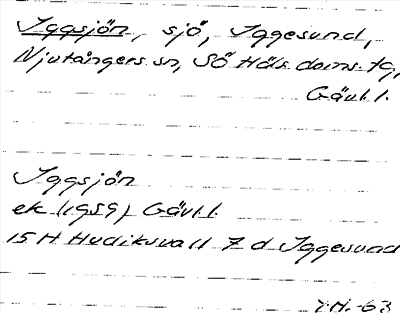 Iggsjön, sjö, Iggesund,
Njutångers sn, Sö Häls. doms. tg,
Gävl. l.
Iggsjön
ek (1959) Gävl. l.
15 H Hudiksvall 7 d Iggesund
Y.H. -63